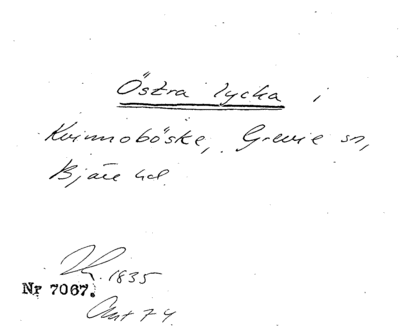 Östra lycka i
Kvinnoböske, Grevie sn,
Bjäre hd.
1835
Nr 7067.
Ant 74